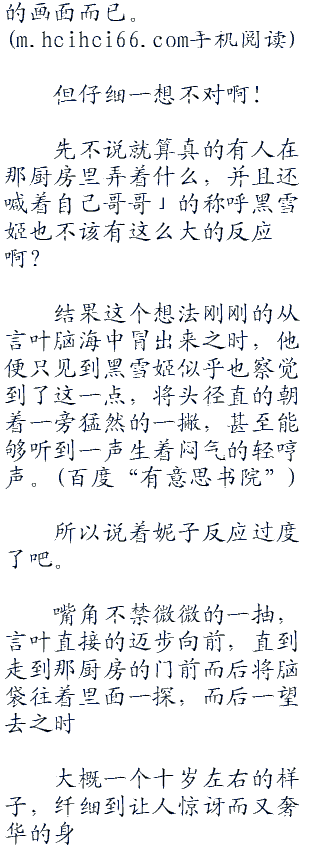 的画面而已。
(m.hcihci66.com手机阅读)
但仔细一想不对啊！
先不说就算真的有人在
那厨房里弄着什么，并且还
喊着自己哥哥」的称呼黑雪
姬也不该有这么大的反应
啊？
结果这个想法刚刚的从
言叶脑海中冒出来之时，他
便只见到黑雪姬似乎也察觉
到了这一点，将头径直的朝
着一旁猛然的一撇，甚至能
够听到一声生着闷气的轻哼
声。(百度“有意思书院”)
所以说着妮子反应过度
了吧。
嘴角不禁微微的一抽，
言叶直接的迈步向前，直到
走到那厨房的门前而后将脑
袋往着里面一探，而后一望
去之时
大概一个十岁左右的样
子，纤细到让人惊讶而又奢
华的身